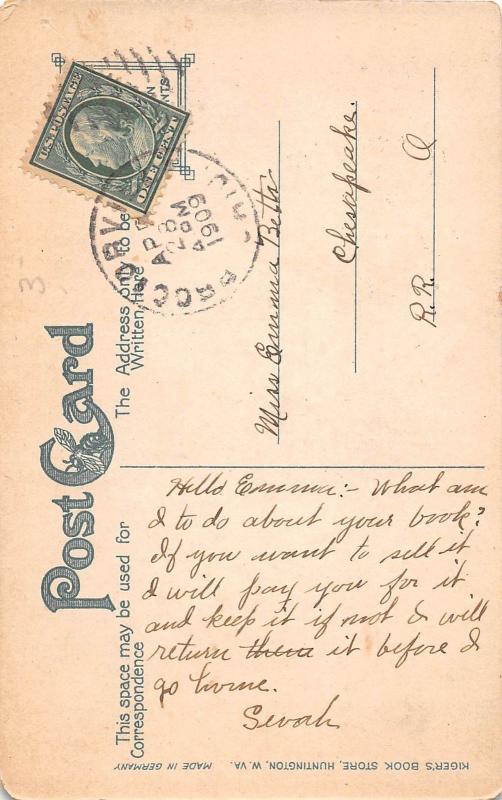 Post Card
This space may be used for
Correspondence
The Address only to be
Written Here
U.S. POSTAGE
ONE CENT
APR
28
4 PM
1909
OHIO
Hello Emma:- What am
I to do about your book?
If you want to sell it
I will pay you for it
and keep it if not I will
return them it before I
go home.
Miss Emma Betts
Chesapeake.
R.R. O
KIGER'S BOOK STORE, HUNTINGTON, W. VA. MADE IN GERMANY
3-